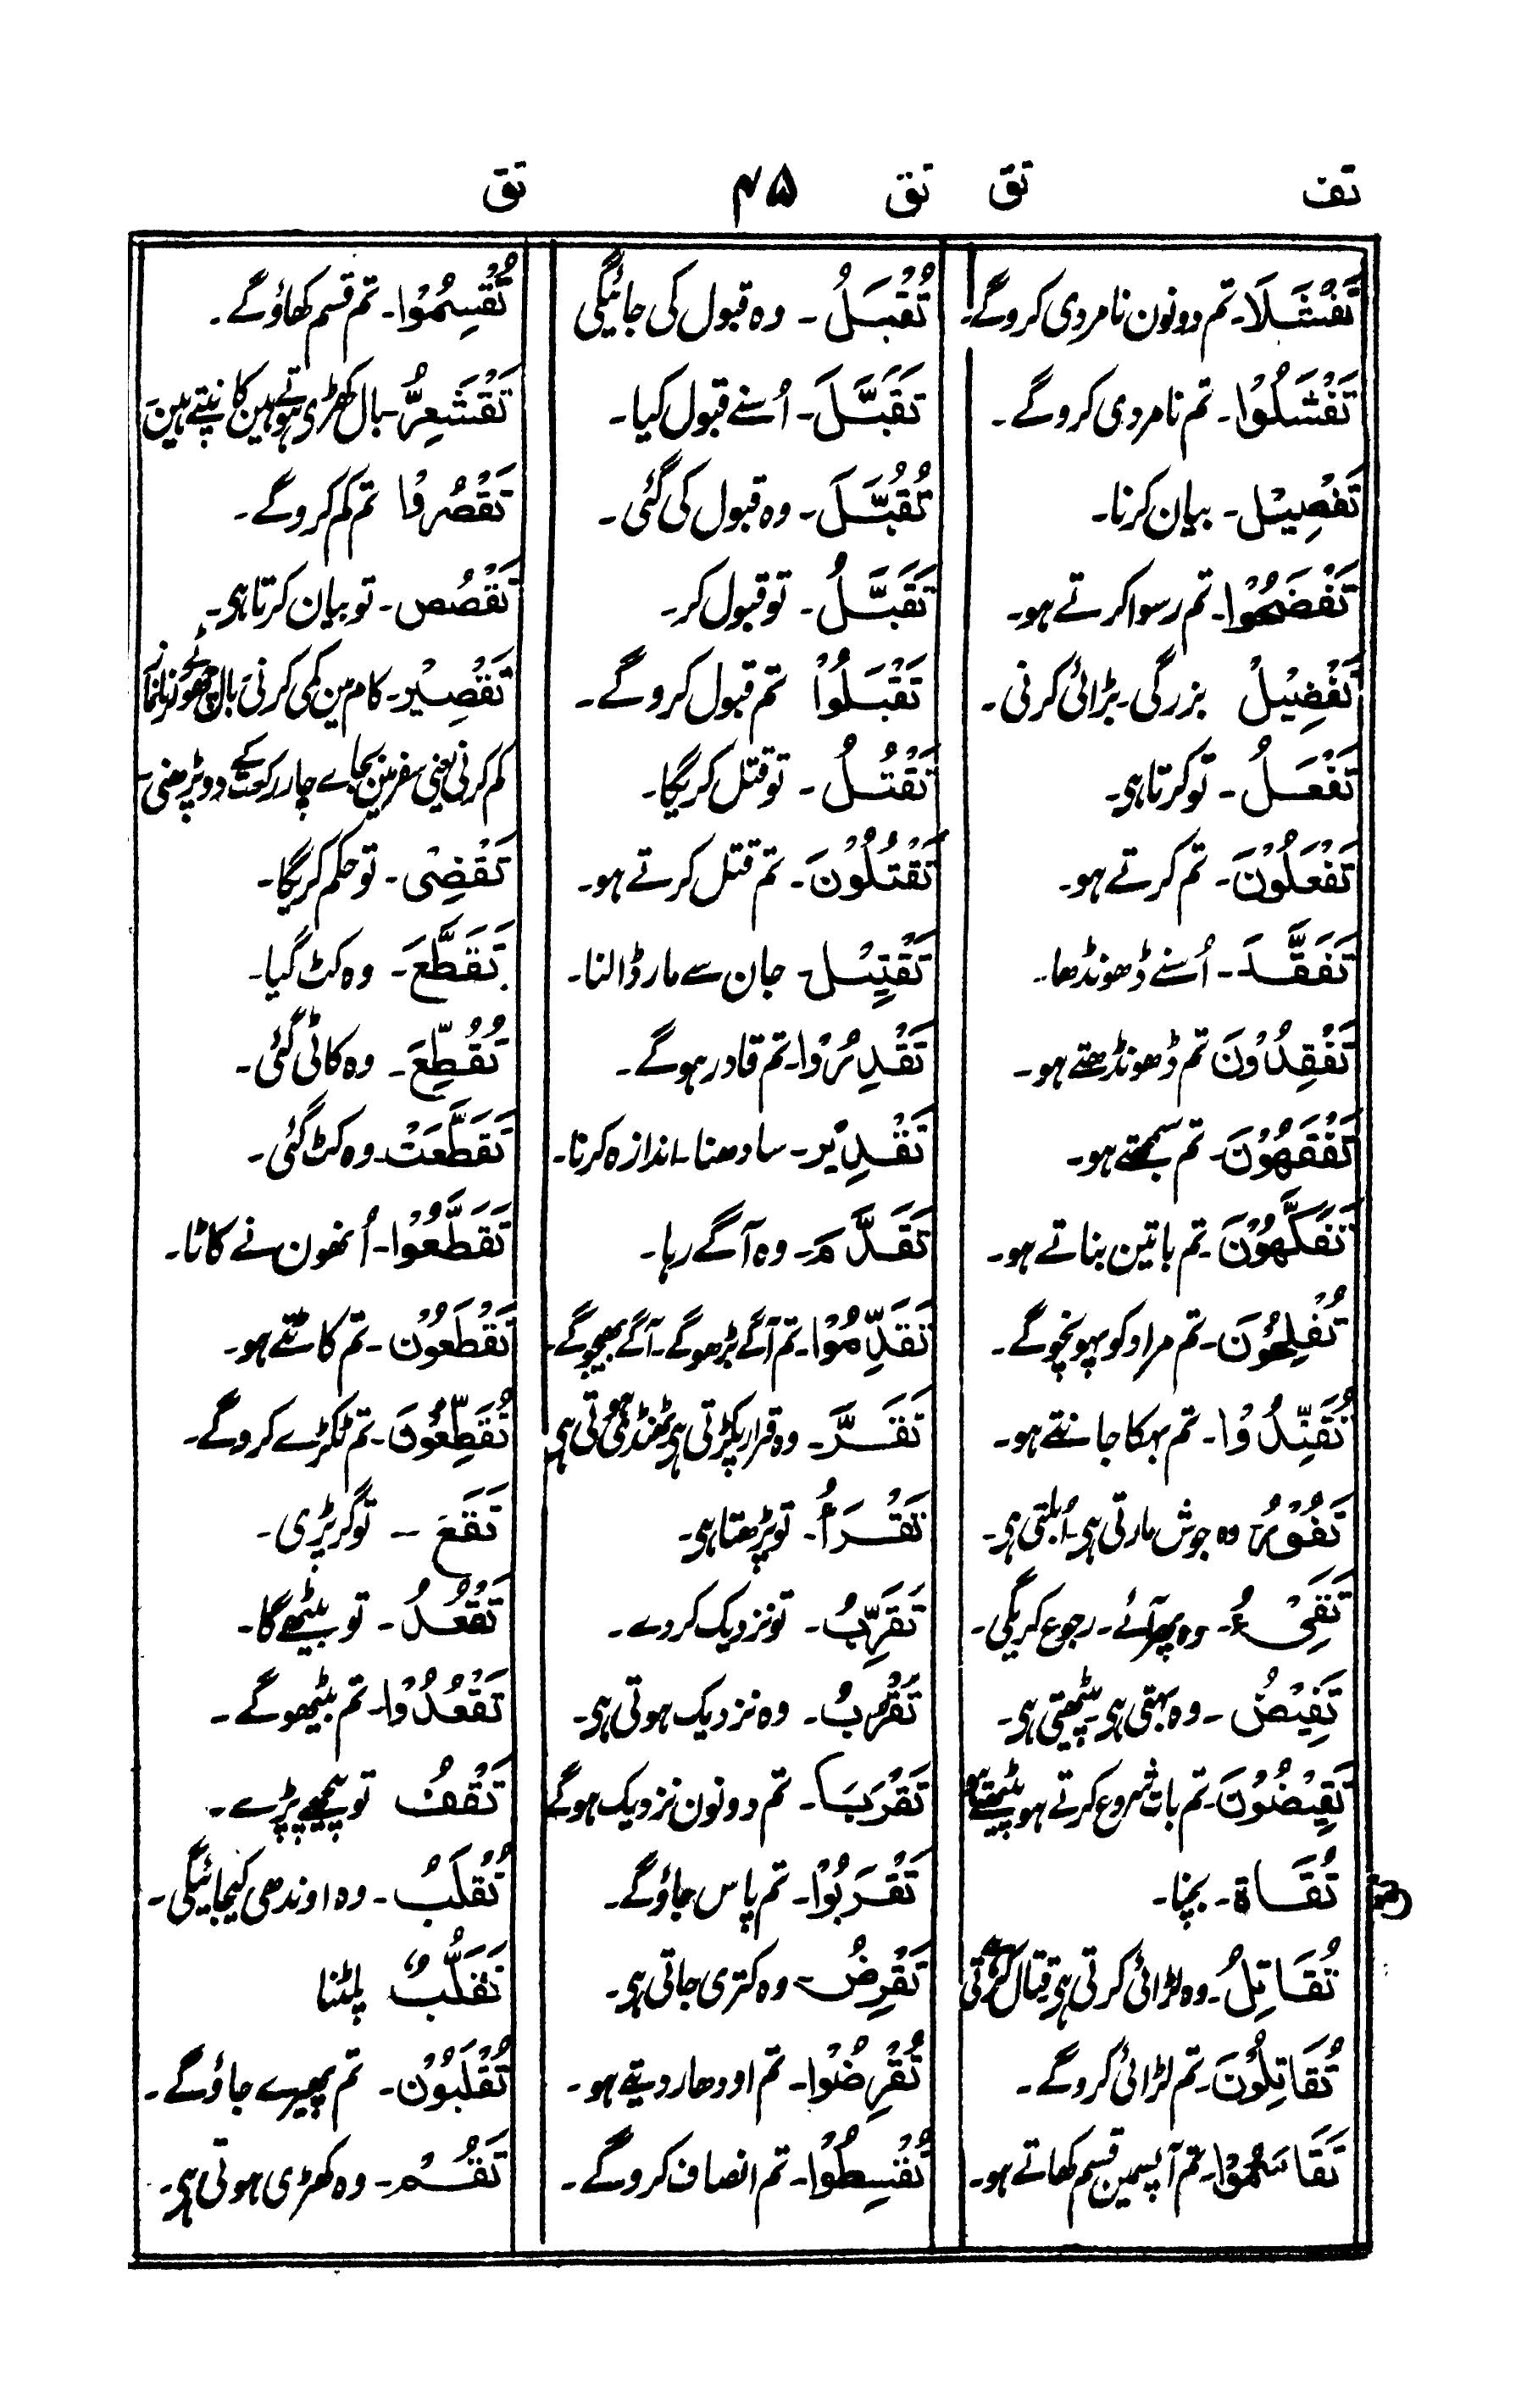 تف تق تق ۴۵ تق
تَفْشَلَا۔ تم دونون نامردی کروگے۔
تَفْشَلُوْا۔ تم نامردی کروگے۔
تَفْصِیْل۔ بیان کرنا۔
تَفْضَحُوْا۔ تم رسوا کرتے ہو۔
تَفْضِیْلُ بزرگی۔ بڑائی کرنی۔
تَفْعَلُ۔ تو کرتا ہی۔
تَفْعَلُوْنَ۔ تم کرتے ہو۔
تَفَقَّدَ۔ اُسنے ڈھونڈھا۔
تَفْقِدُوْنَ تم ڈھونڈھتے ہو۔
تَفْقَهُوْنَ۔ تم سمجھتے ہو۔
تَفَكَّهُوْنَ۔ تم باتین بناتے ہو۔
تُفْلِحُوْنَ۔ تم مراد کو پہونچوگے۔
تُفَنِّدُوْا۔ تم بہکا جانتے ہو۔
تَفُوْرُ وہ جوش مارتی ہی۔ اُبلتی ہی۔
تَفِیْءُ۔ وہ پھر آئے۔ رجوع کریگی۔
تَفِیْضُ۔ وہ بہتی ہی۔ پیٹھتی ہی۔
تَفِیْضُوْنَ۔ تم بات شروع کرتے ہو
تُقَاة۔ بچنا۔
تُقَاتِلُ۔ وہ لڑائی کرتی ہی قتال کرتی
تُقَاتِلُوْنَ۔ تم لڑائی کروگے۔
تَقَاسَمُوْا۔ تم آپسمین قسم کھاتے ہو۔
تُقْبَلُ۔ وہ قبول کی جائیگی
تَقَبَّلَ۔ اُسنے قبول کیا۔
تُقُبِّلَ۔ وہ قبول کی گئی۔
تَقَبَّلْ۔ تو قبول کر۔
تَقْبَلُوْا تم قبول کروگے۔
تَقْتُلُ۔ تو قتل کریگا۔
تَقْتُلُوْنَ۔ تم قتل کرتے ہو۔
تَقْتِیْل۔ جان سے مار ڈالنا۔
تَقْدِرُوْا۔ تم قادر ہوگے۔
تَقْدِیْر۔ سادھنا۔ اندازہ کرنا۔
تَقَدَّمَ۔ وہ آگے رہا۔
تَقَدِّمُوْا۔ تم آگے بڑھوگے۔ آگے بھیجوگے۔
تَقَرَّ۔ وہ قرار پکڑتی ہی ٹھنڈی ہوتی ہی
تَقْرَأُ۔ تو پڑھتا ہی۔
تَقَرِّبُ۔ تو نزدیک کردے۔
تَقْرُبُ۔ وہ نزدیک ہوتی ہی۔
تَقْرَبَا۔ تم دونون نزدیک ہوگے
تَقْرَبُوْا۔ تم پاس جاؤگے۔
تَقْرِضُ۔ وہ کتری جاتی ہی۔
تُقْرِضُوْا۔ تم اودھار دیتے ہو۔
تُقْسِطُوْا۔ تم انصاف کروگے۔
تُقْسِمُوْا۔ تم قسم کھاؤگے۔
تَقْشَعِرُّ۔ بال کھڑی ہوتے ہین کانپتے ہین
تَقْصُرُوْا تم کم کروگے۔
تَقْصُص۔ تو بیان کرتا ہی۔
تَقْصِیْر۔ کام مین کمی کرنی بال چھوٹے کرنا نماز
کم کرنی یعنی سفر مین بجاے چار رکعت کے دو پڑھنی
تَقْضِیْ۔ تو حکم کریگا۔
تَقَطَّعَ۔ وہ کٹ گیا۔
تُقُطِّعَ۔ وہ کاٹی گئی۔
تَقَطَّعَتْ۔ وہ کٹ گئی۔
تَقَطَّعُوْا۔ اُنھون نے کاٹا۔
تَقْطَعُوْن۔ تم کاٹتے ہو۔
تُقَطِّعُوْنَ۔ تم ٹکڑے کروگے۔
تَقَعَ – تو گر پڑی۔
تَقْعُدُ۔ تو بیٹھے گا۔
تَقْعُدُوْا۔ تم بیٹھوگے۔
تَقْفُ تو پیچھے پڑے۔
تُقْلَبُ۔ وہ اوندھی کیجائیگی۔
تَقَلُّبُ پلٹنا
تُقْلَبُوْن۔ تم پھیرے جاؤگے۔
تَقُمْ۔ وہ کھڑی ہوتی ہی۔